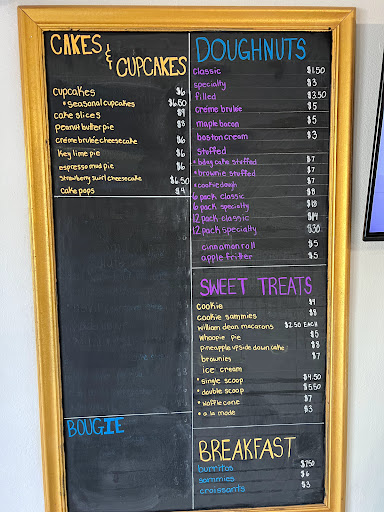 CAKES & CUPCAKES
cupcakes $6
* seasonal cupcakes $6.50
cake slices $9
peanut butter pie $8
créme brulée cheesecake $6
key lime pie $6
espresso mud pie $6
strawberry swirl cheesecake $6.50
cake pops $4
BOUGIE
DOUGHNUTS
classic $1.50
specialty $3
filled $3.50
créme brulée $5
maple bacon $5
boston cream $3
stuffed
* bday cake stuffed $7
* brownie stuffed $7
* cookie dough $7
6 pack classic $8
6 pack specialty $18
12 pack classic $14
12 pack specialty $30
cinnamon roll $5
apple fritter $5
SWEET TREATS
cookie $4
cookie sammies $8
william dean macarons $2.50 EACH
whoopie pie $5
pineapple upside down cake $8
brownies $7
ice cream
* single scoop $4.50
* double scoop $5.50
* waffle cone $7
* a la mode $3
BREAKFAST
burritos $7.50
sammies $6
croissants $3